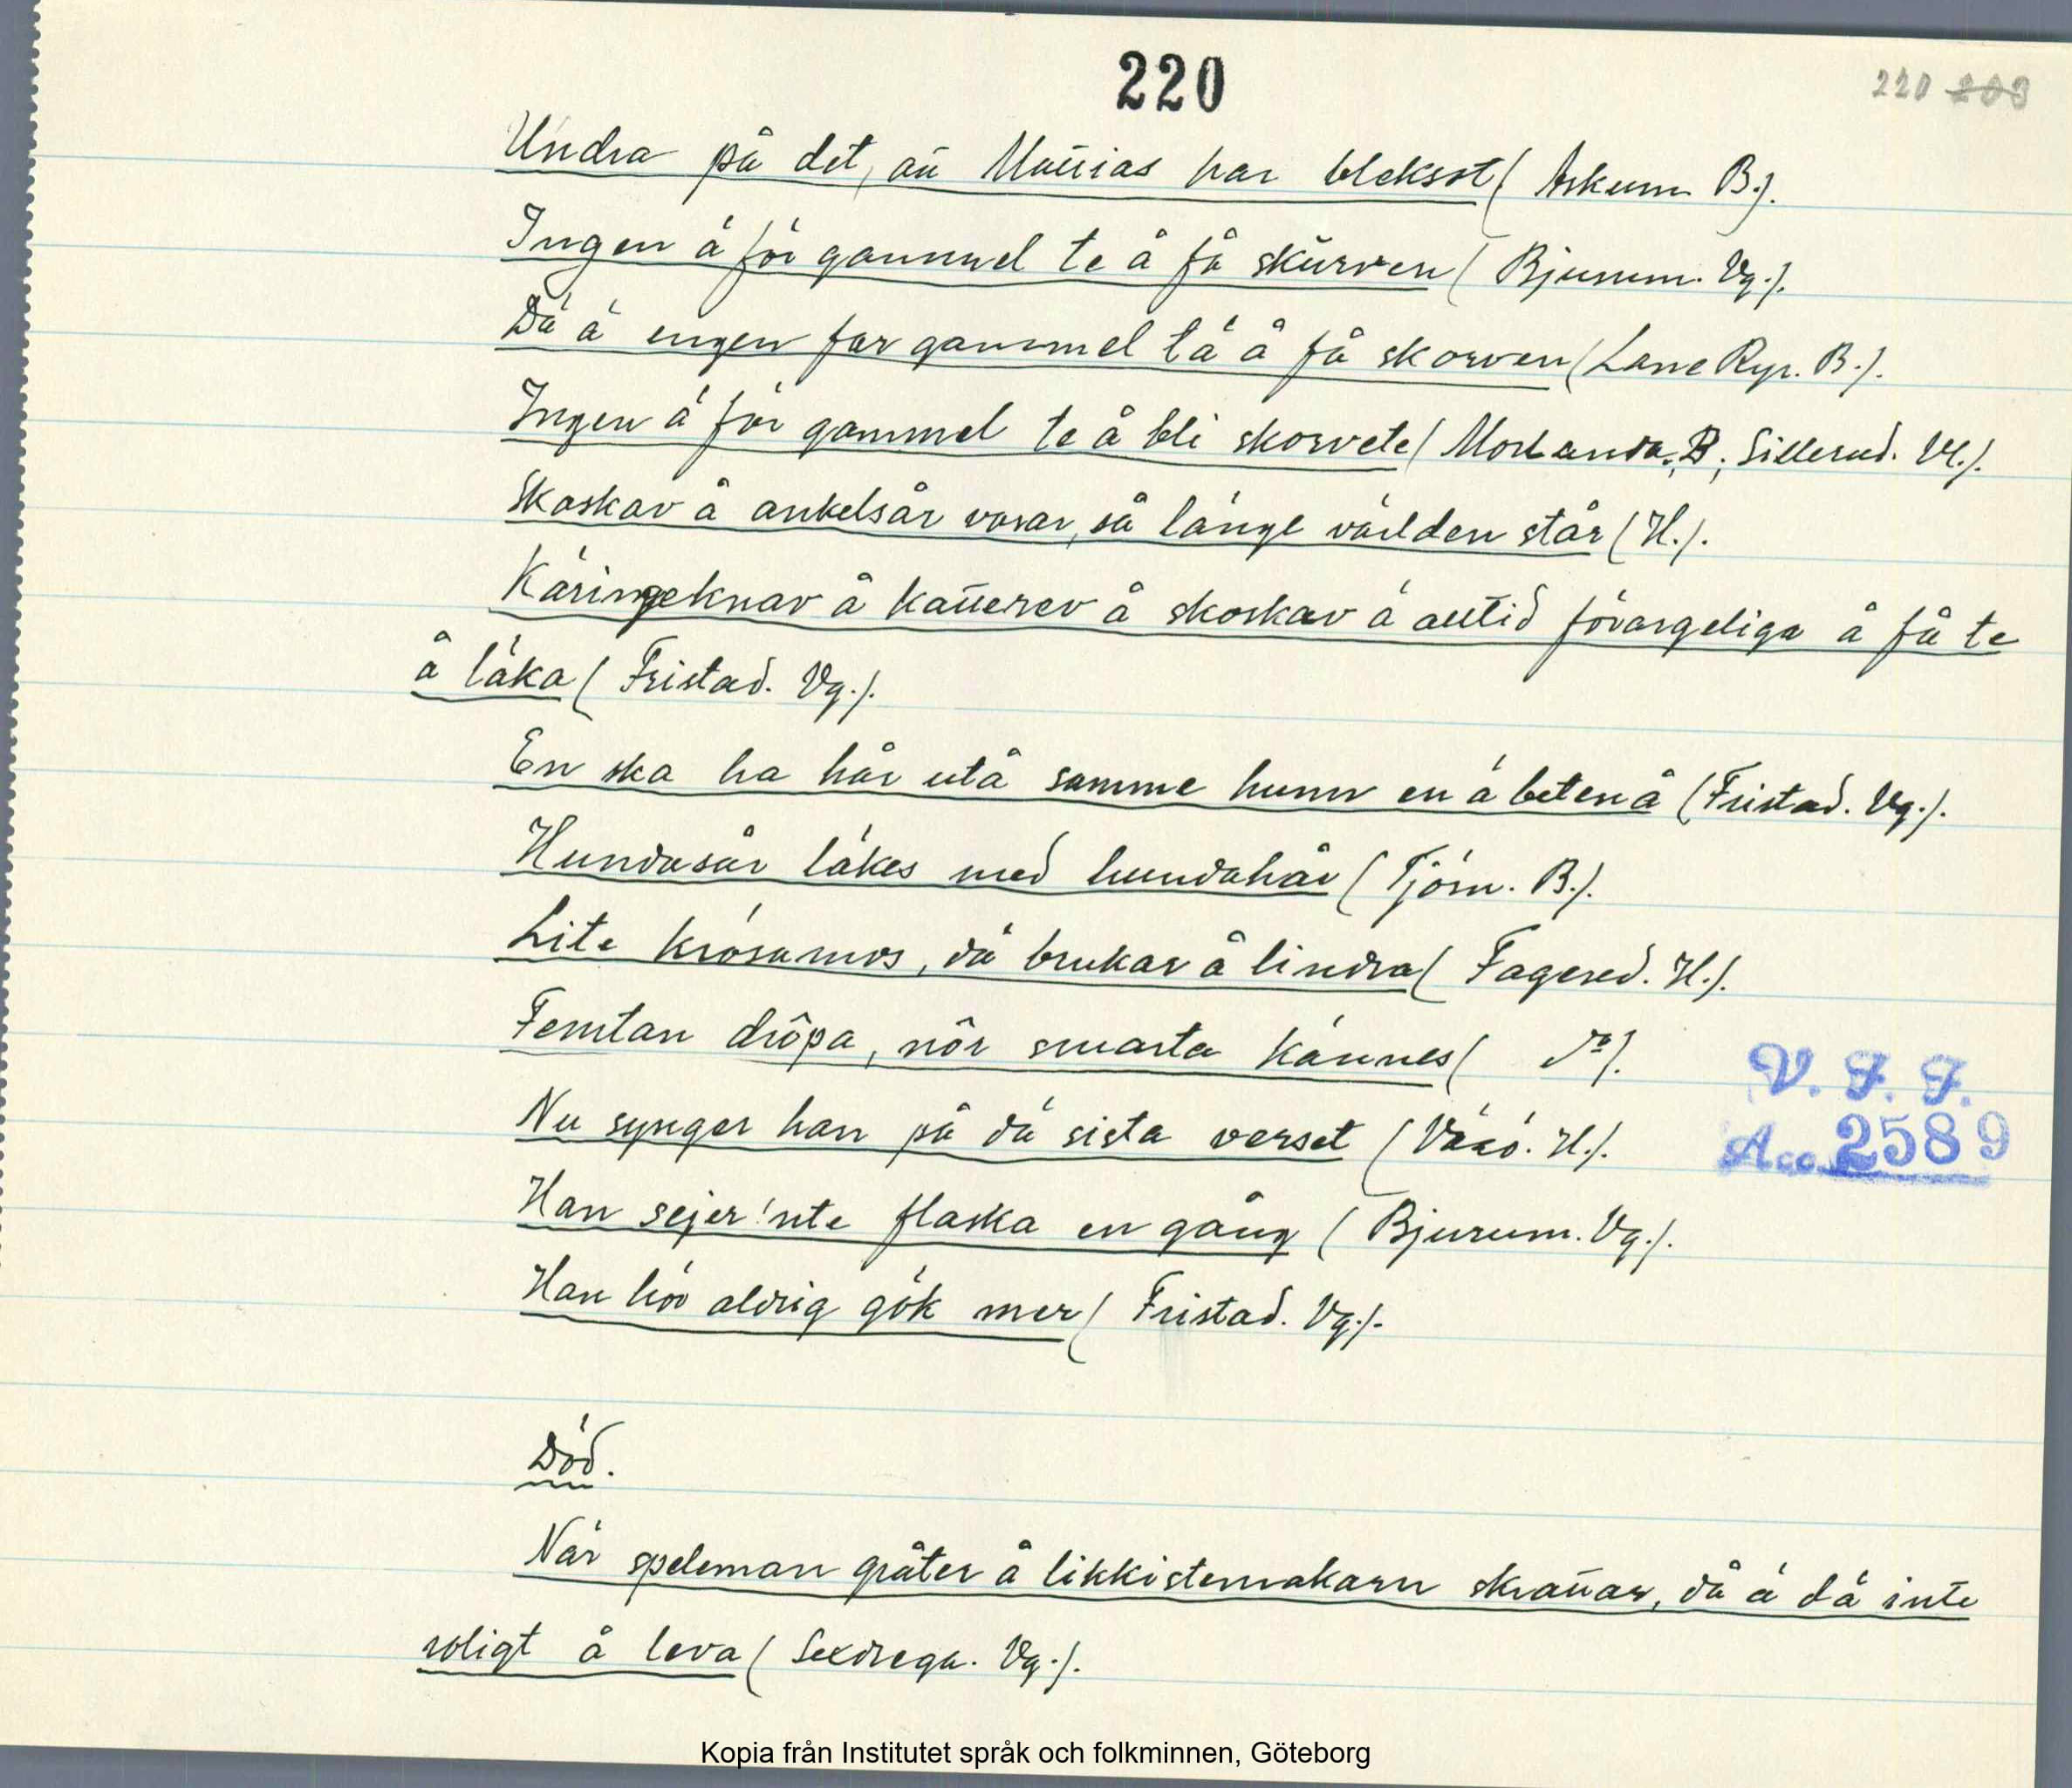 220
220 203
Undra på det, att Mattias har bleksot (Askum. B.).
Ingen ä för gammel te å få skurven (Bjurum. Vg.).
Dä ä engen for gammel tä å få skorven (Lane Ryr. B.).
Ingen ä för gammel te å bli skorvete (Morlanda. B.; Sillerud. Vl.).
Skoskav å ankelsår varar, så länge världen står (H.).
Käringeknav å katterev å skoskav ä alltid förargeliga å få te
å läka (Fristad. Vg.).
En ska ha hår utå samme hunn en ä beten å (Fristad. Vg.).
Hundasår läkes med hundahår (Tjörn. B.).
Lite krösamos, dä brukar å lindra (Fagered. H.).
Femtan dröpa, nör smarta kännes (do).
Nu synger han på dä sista verset (Värö. H.).
Han sejer 'nte flaska en gång (Bjurum. Vg.).
Han hör aldrig gök mer (Fristad. Vg.).
V. F. F.
Acc. 2589
Död.
När speleman gråter å likkistemakarn skrattar, då ä dä inte
roligt å leva (Sexdrega. Vg.).
Kopia från Institutet språk och folkminnen, Göteborg